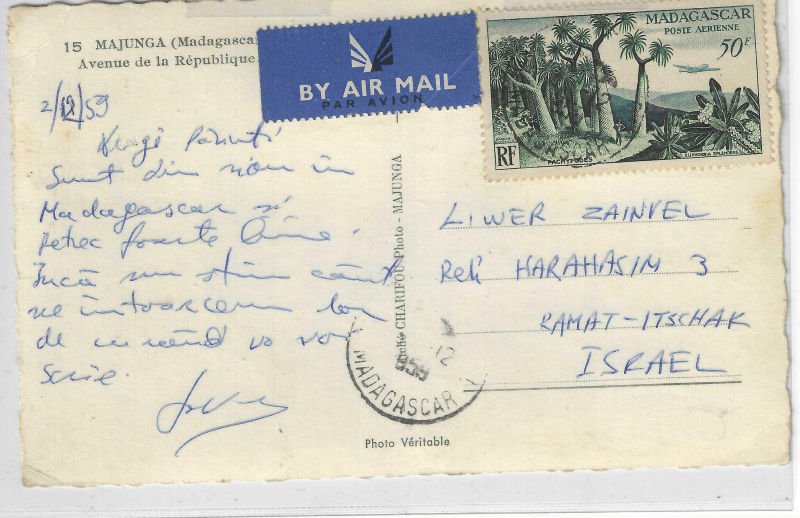 15 MAJUNGA (Madagascar
Avenue de la République
BY AIR MAIL
PAR AVION
MADAGASCAR
POSTE AÉRIENNE
50F
RF
PACHYPODES
EUPHORBIA SPLENDENS
2/12/59
Dragi Părinți
Sunt din nou în
Madagascar și
petrec foarte bine.
Încă nu știm când
ne întoarcem
de curând vă voi
scrie.
Cliché CHARIFOU Photo - MAJUNGA
LIWER ZAINVEL
Reh HARAHASIM 3
RAMAT-ITSCHAK
ISRAEL
MADAGASCAR
Photo Véritable